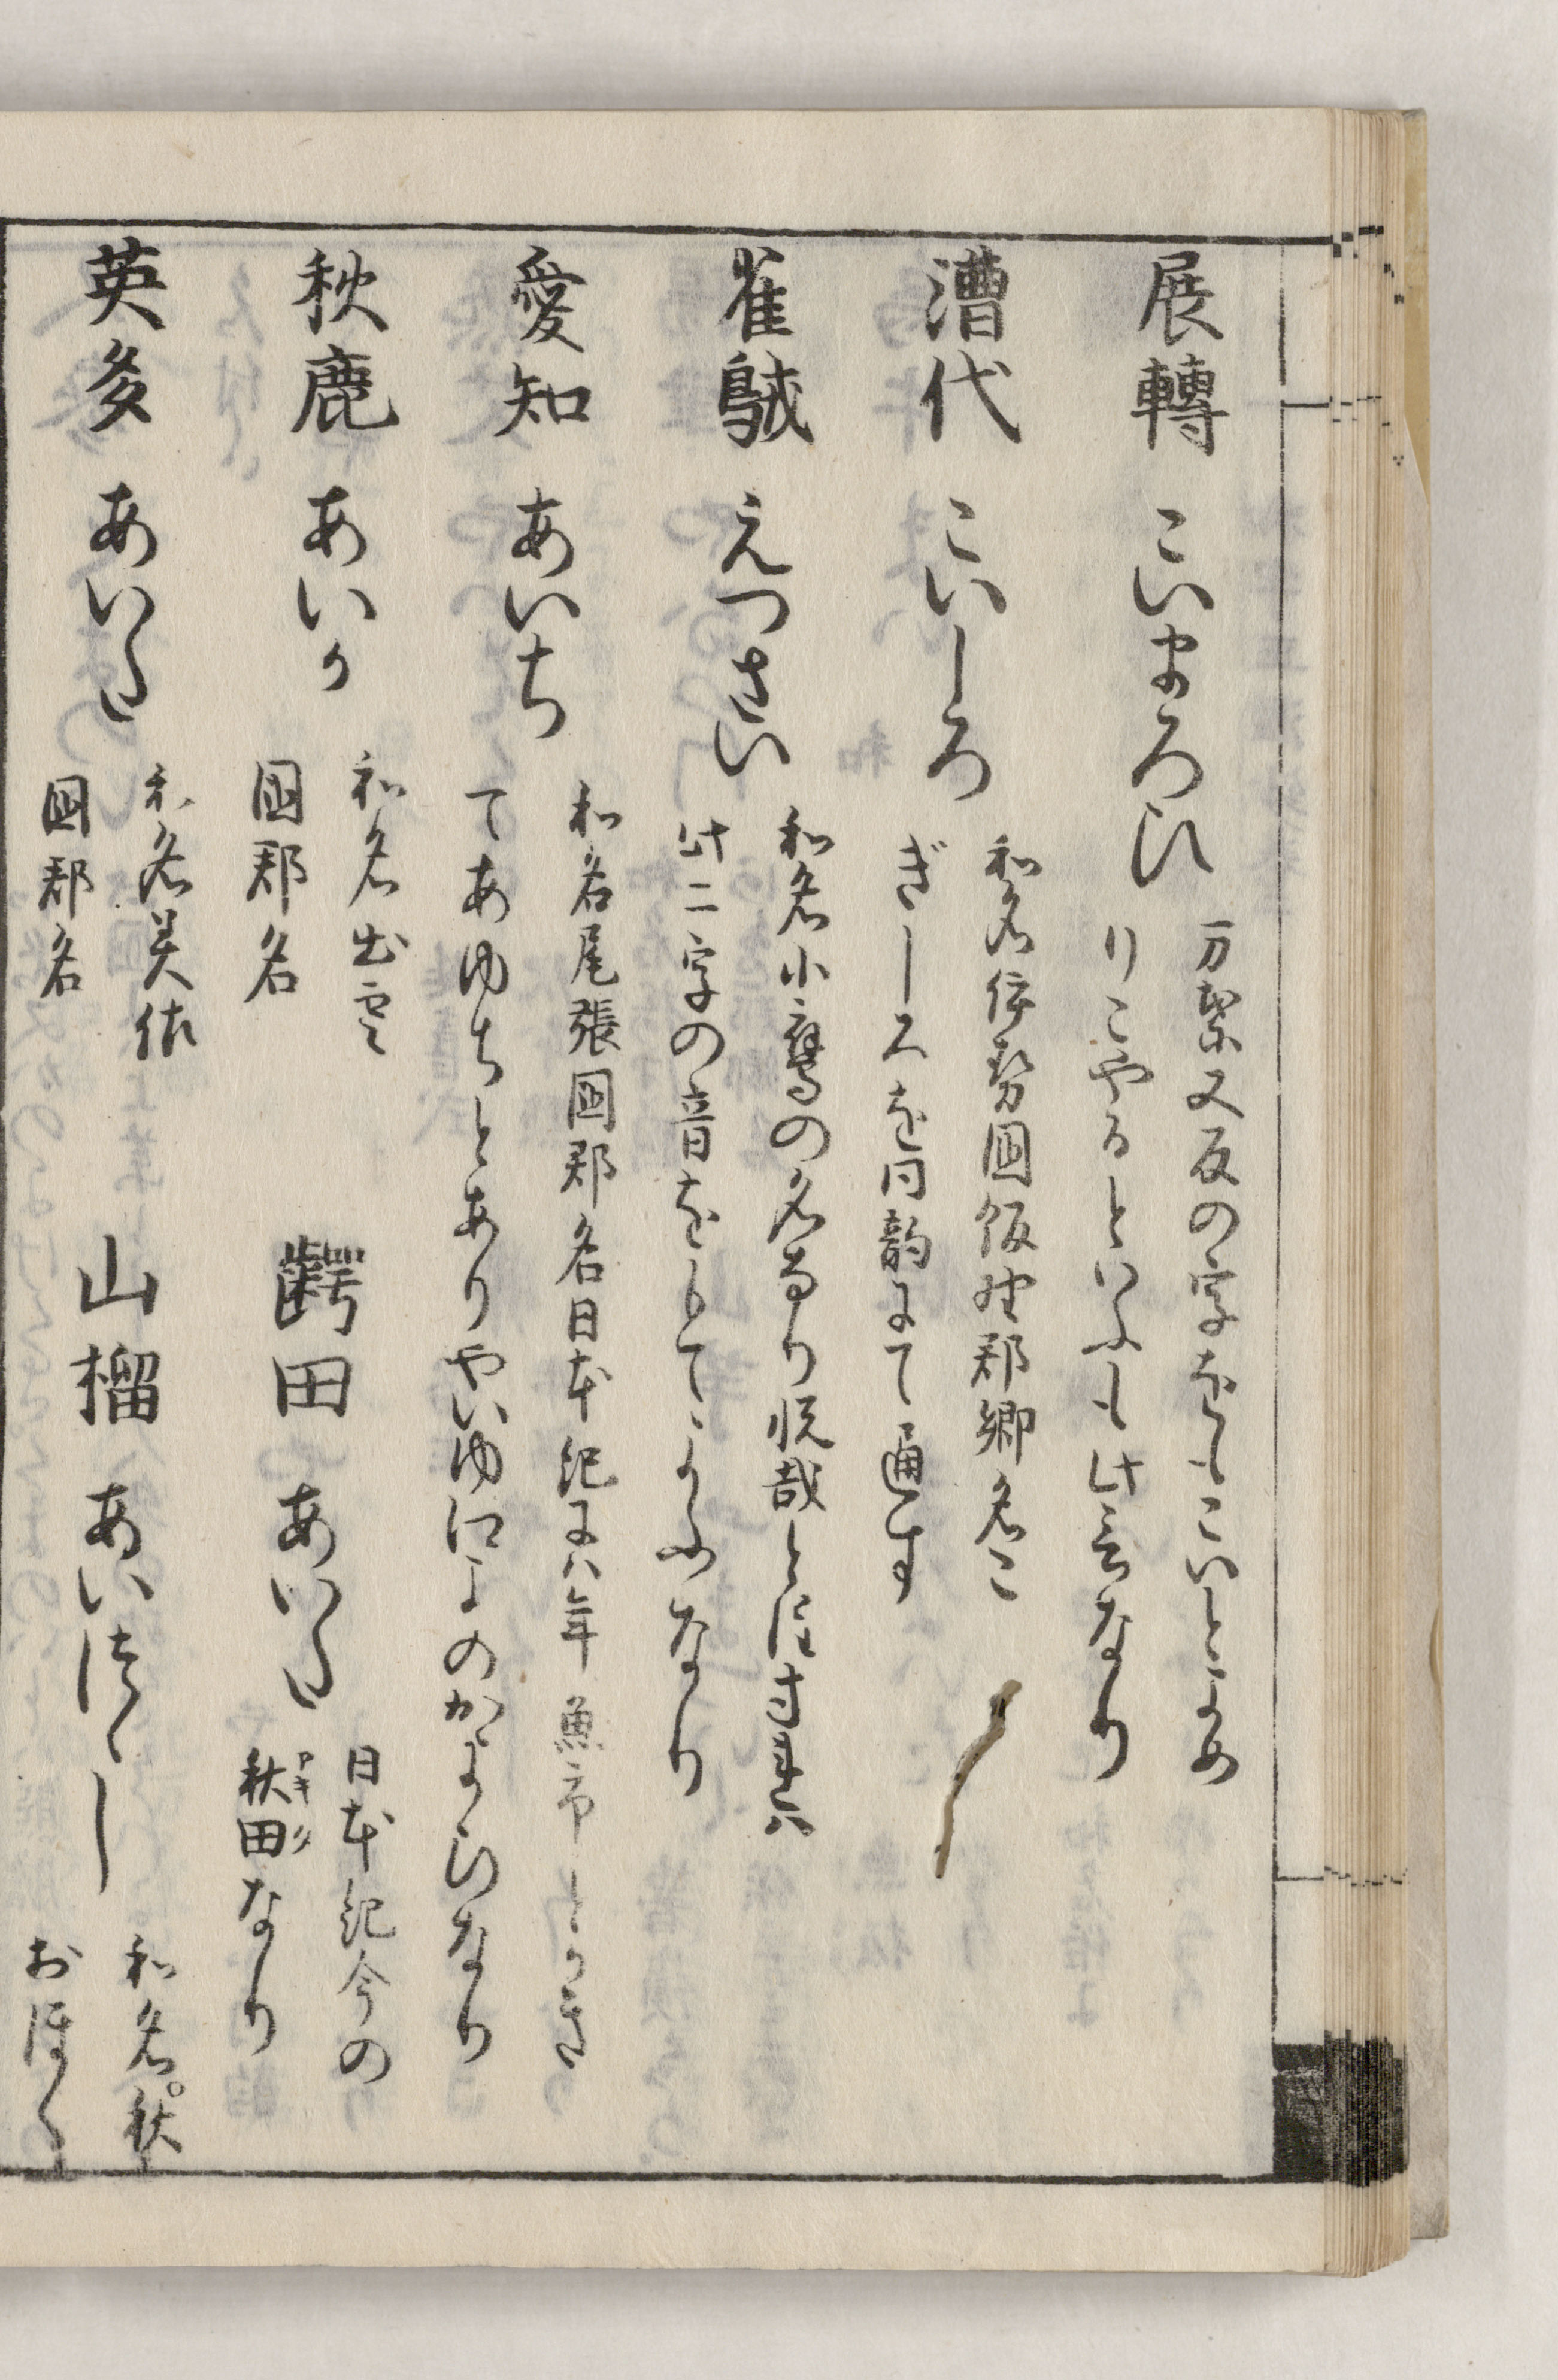 展轉 こいまろひ
万葉又反の字をもこいとよめ
りこやるといふも此言なり
漕代 こいしろ
和名伊勢国飯野郡郷名こ
ぎーしろを同韵にて通す
雀𪀚 えつさい
和名小鷹の名なり悦哉と注すれハ
此二字の音をもてよふなり
愛知 あいち
和名尾張国郡名日本紀にハ年魚市とかき
てあゆちとありやいゆ江よのかよひなり
秋鹿 あいか
和名出雲
国郡名
齶田 あいた
日本紀今の
秋田アキタなり
英多 あいた
和名美作
国郡名
山榴 あいつゝし
和名秋
おほく